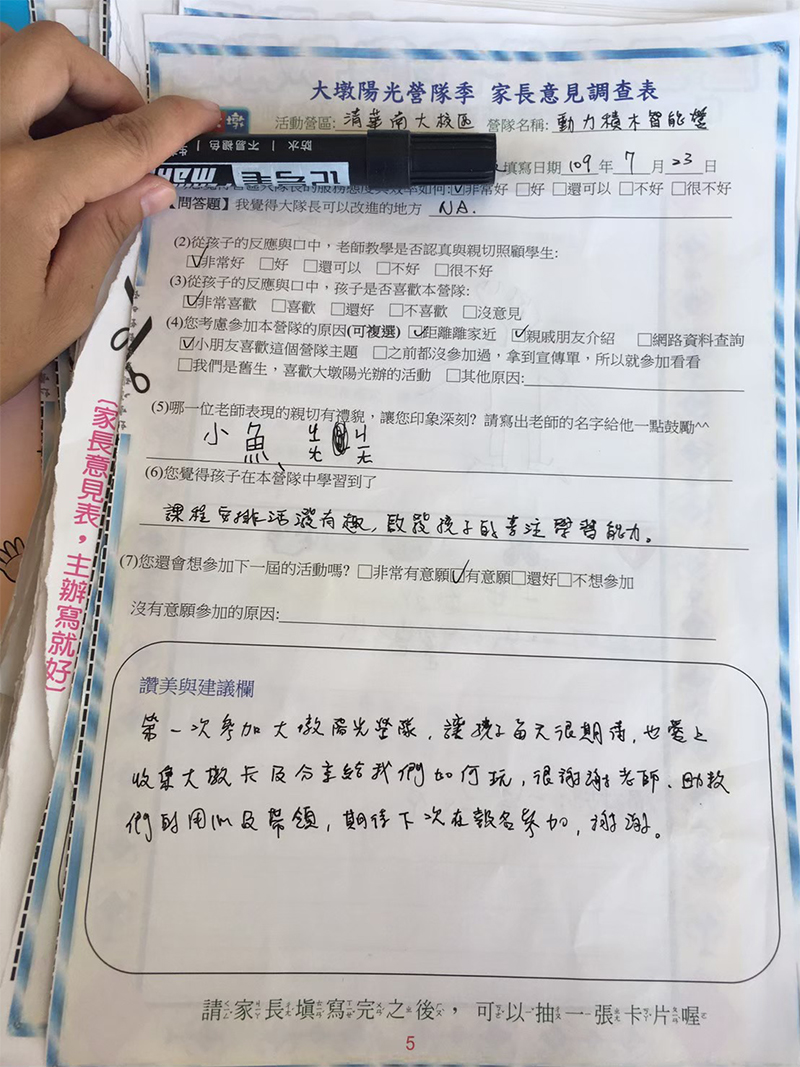 大墩陽光營隊季 家長意見調查表
活動營區: 清華南大校區 營隊名稱: 動力積木智能營
防水 | 不易褪色
填寫日期 109 年 7 月 23 日
☑非常好 □好 □還可以 □不好 □很不好
【問答題】我覺得大隊長可以改進的地方 NA.
(2)從孩子的反應與口中，老師教學是否認真與親切照顧學生:
☑非常好 □好 □還可以 □不好 □很不好
(3)從孩子的反應與口中，孩子是否喜歡本營隊:
☑非常喜歡 □喜歡 □還好 □不喜歡 □沒意見
(4)您考慮參加本營隊的原因(可複選) ☑距離離家近 ☑親戚朋友介紹 □網路資料查詢
☑小朋友喜歡這個營隊主題 □之前都沒參加過，拿到宣傳單，所以就參加看看
□我們是舊生，喜歡大墩陽光辦的活動 □其他原因:
(5)哪一位老師表現的親切有禮貌，讓您印象深刻? 請寫出老師的名字給他一點鼓勵^^
小魚
(6)您覺得孩子在本營隊中學習到了
課程安排活潑有趣，啟發孩子的專注學習能力。
(7)您還會想參加下一屆的活動嗎? □非常有意願☑有意願□還好□不想參加
沒有意願參加的原因:
讚美與建議欄
第一次參加大墩陽光營隊，讓孩子每天很期待，也愛上
收集大墩卡及分享給我們如何玩，很謝謝老師、助教
們的用心及帶領，期待下次在報名參加，謝謝。
請家長填寫完之後，可以抽一張卡片喔
5
〔家長意見表，主辦寫就好〕